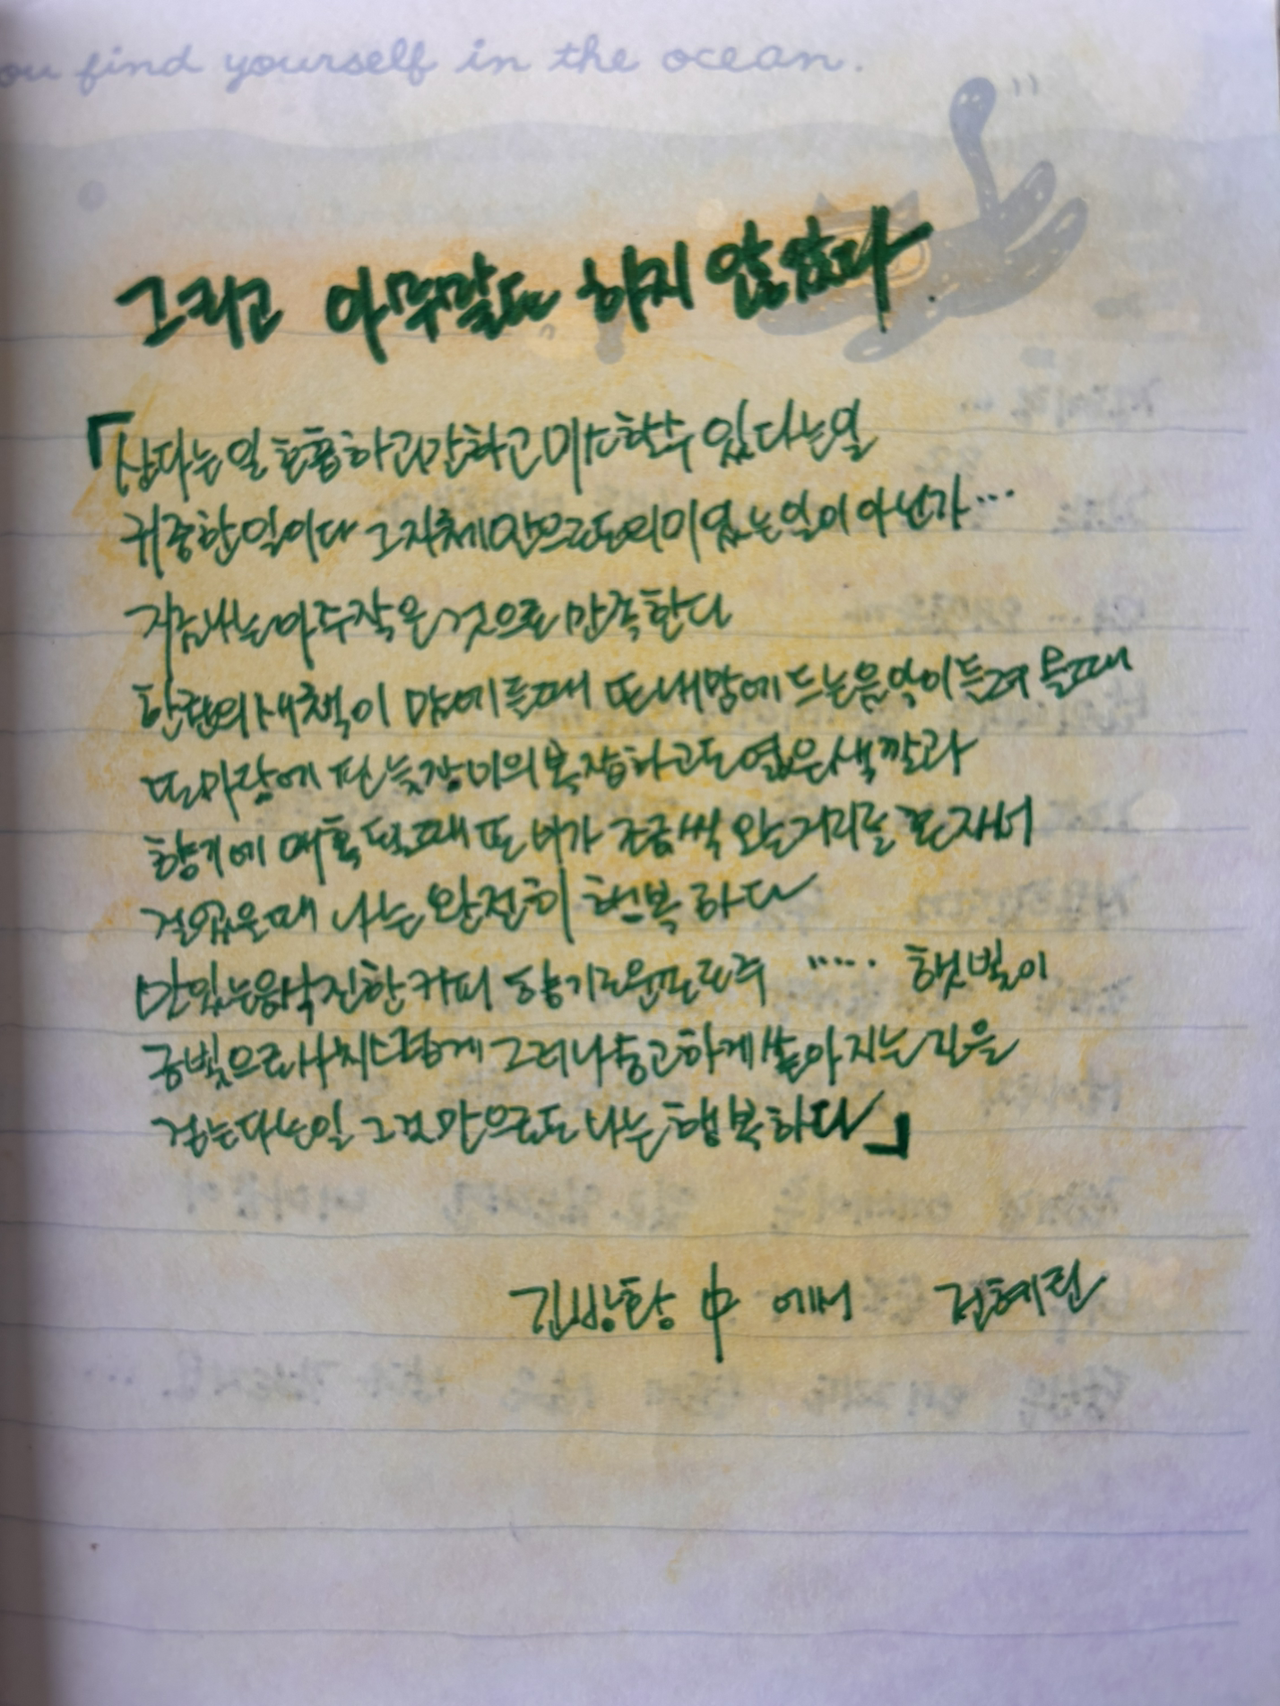 ou find yourself in the ocean.
그리고 아무말도 하지 않았다.
「산다는일 호흡하고 말하고 미소할수 있다는일
귀중한일이다 그자체만으로도 의미있는일이 아닌가…
지금나는 아주작은 것으로 만족한다
한권의 새책이 맘에들때 또 내맘에 드는음악이 들려 올때
또마당에 핀 늦장미의 복잡하고도 엷은색깔과
향기에 매혹 될때 또 비가 조금씩 오는거리를 혼자서
걸었을때 나는 완전히 행복 하다
맛있는음식 진한커피 향기로운포도주 ····· 햇빛이
금빛으로 사치스럽게 그러나 숭고하게 쏟아지는 길을
걷는다는일 그것만으로도 나는 행복하다」
긴방황 中 에서 전혜린